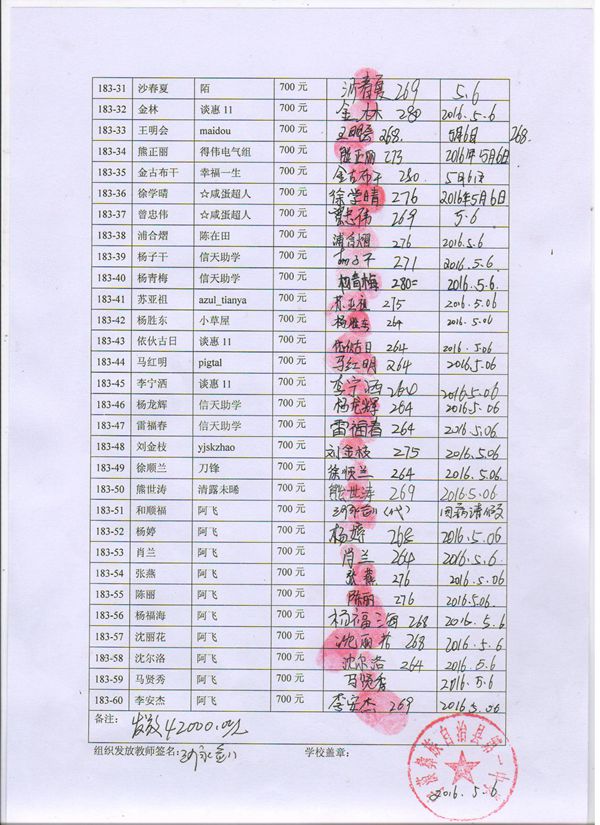 183-31 沙春夏 陌 700 元 沙春夏 269 5.6
183-32 金林 谈惠 11 700 元 金林 280 2016.5.6
183-33 王明会 maidou 700 元 王明会 268. 5月6日 268.
183-34 熊正丽 得伟电气组 700 元 熊正丽 273 2016年5月6日
183-35 金古布干 幸福一生 700 元 金古布干 280. 5月6日
183-36 徐学晴 ☆咸蛋超人 700 元 徐学晴 276 2016年5月6日
183-37 曾忠伟 ☆咸蛋超人 700 元 曾忠伟 269 5.6
183-38 浦合熠 陈在田 700 元 浦合熠 276 2016.5.6
183-39 杨子干 信天助学 700 元 杨子干 271 2016.5.6.
183-40 杨青梅 信天助学 700 元 杨青梅 280 2016.5.6.
183-41 苏亚祖 azul_tianya 700 元 苏亚祖 275 2016.5.06
183-42 杨胜东 小草屋 700 元 杨胜东 264 2016.5.06
183-43 依伙古日 谈惠 11 700 元 依伙古日 264 2016.5.06
183-44 马红明 pigtal 700 元 马红明 264 2016.5.06
183-45 李宁酒 谈惠 11 700 元 李宁酒 2016.5.06
183-46 杨龙辉 信天助学 700 元 杨龙辉 264 2016.5.06
183-47 雷福春 信天助学 700 元 雷福春 264 2016.5.06
183-48 刘金枝 yjskzhao 700 元 刘金枝 275 2016.5.06
183-49 徐顺兰 刀锋 700 元 徐顺兰 264 2016.5.06.
183-50 熊世涛 清露未晞 700 元 熊世涛 269 2016.5.06
183-51 和顺福 阿飞 700 元 (代) 请假
183-52 杨婷 阿飞 700 元 杨婷 268 2016.5.06
183-53 肖兰 阿飞 700 元 肖兰 264 2016.5.6.
183-54 张燕 阿飞 700 元 张燕 276 2016.5.06
183-55 陈丽 阿飞 700 元 陈丽 276 2016.5.06.
183-56 杨福海 阿飞 700 元 杨福海 268 2016.5.6
183-57 沈丽花 阿飞 700 元 沈丽花 268 2016.5.6
183-58 沈尔洛 阿飞 700 元 沈尔洛 264 2016.5.6
183-59 马贤秀 阿飞 700 元 马贤秀 2016.5.6
183-60 李安杰 阿飞 700 元 李安杰 269 2016.5.06
备注: 发放42000.00元
组织发放教师签名: 学校盖章:
族自治县第一中学
2016.5.6